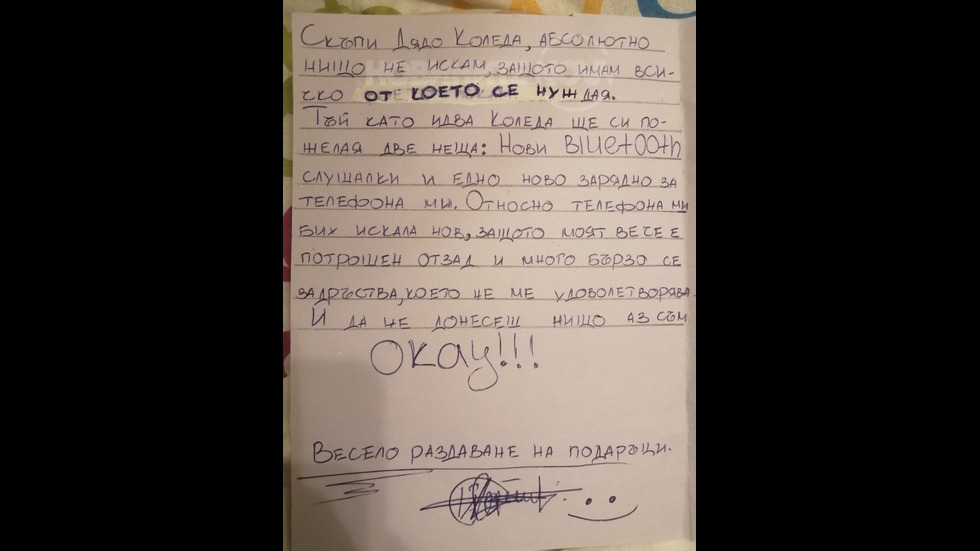 Скъпи Дядо Коледа, абсолютно
нищо не искам, защото имам вси-
чко от което се нуждая.
Тъй като идва Коледа ще си по-
желая две неща: Нови Bluetooth
слушалки и едно ново зарядно за
телефона ми. Относно телефона ми
бих искала нов, защото моят вече е
потрошен отзад и много бързо се
задръства, което не ме удоволетворява.
И да не донесеш нищо аз съм
okay!!!
Весело раздаване на подаръци.